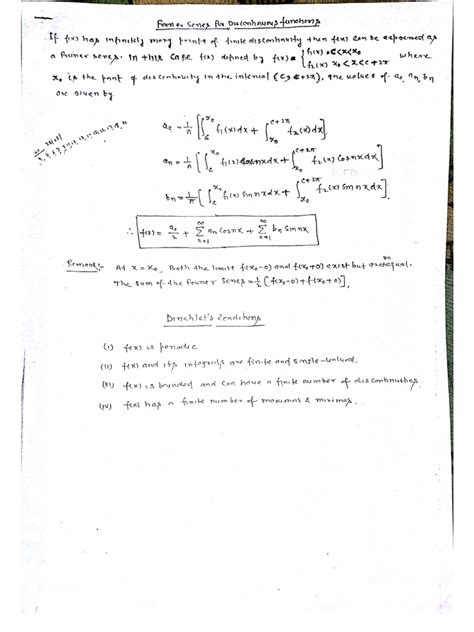 Fourier Series for Discontinuous functions
If f(x) has infinitely many points of finite discontinuity then f(x) can be expressed as
a Fourier series. In this case f(x) defined by f(x) = { f₁(x), c<x<x₀
f₂(x) x₀<x<c+2π where
x₀ is the point of discontinuity in the interval (c, c+2π), the values of a₀, aₙ, bₙ
are given by.
a₀ = 1/π [∫_c^x₀ f₁(x)dx + ∫_x₀^c+2π f₂(x)dx].
aₙ = 1/π [∫_c^x₀ f₁(x) cosnxdx + ∫_x₀^c+2π f₂(x) cosnxdx]
bₙ = 1/π [∫_c^x₀ f₁(x) sinnxdx + ∫_x₀^c+2π f₂(x) sinnxdx].
∴ f(x) = a₀/2 + ∑_n=1^∞ aₙ cosnx + ∑_n=1^∞ bₙ sinnx
Remark:- At x = x₀, Both the limits f(x₀-0) and f(x₀+0) exist but are not equal.
The sum of the Fourier Series = ½ [f(x₀-0) + f(x₀+0)].
Dirichlet's Conditions
(i) f(x) is periodic.
(ii) f(x) and its integrals are finite and single-valued.
(iii) f(x) is bounded and can have a finite number of discontinuities.
(iv) f(x) has a finite number of maximas & minimas.